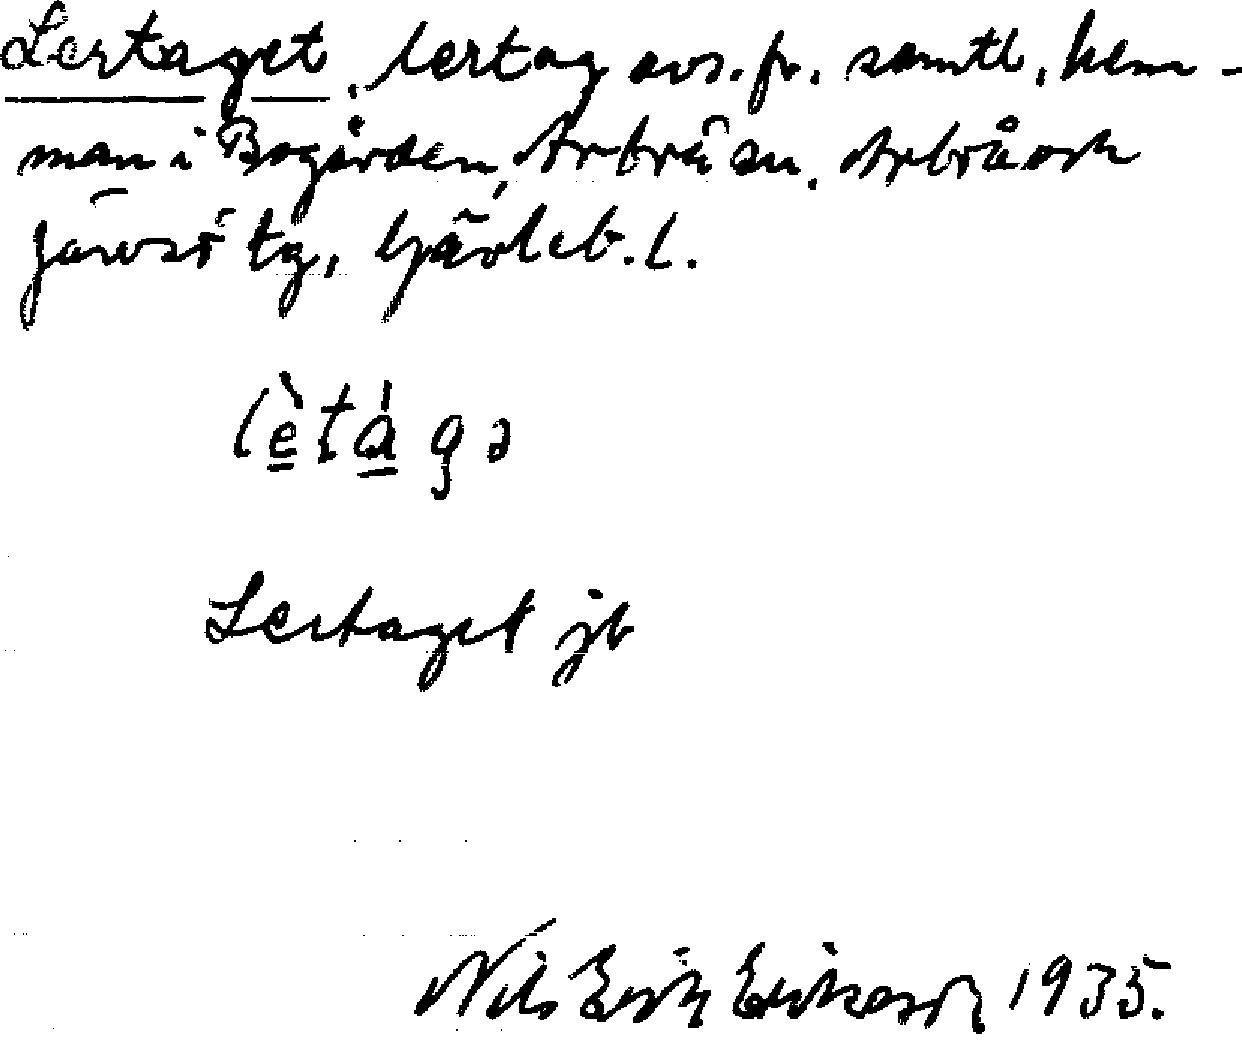 Lertaget, lertag avs. fr. samtl. hem-
man i Bogården, Arbrå sn. Arbrå och
Järvsö tg, Gävleb. l.
lètágə
Lertaget jb
Nils Erik Erikesson 1935.